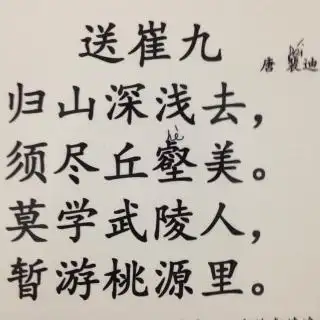 送崔九
唐 裴迪
归山深浅去，
hè
须尽丘壑美。
莫学武陵人，
暂游桃源里。